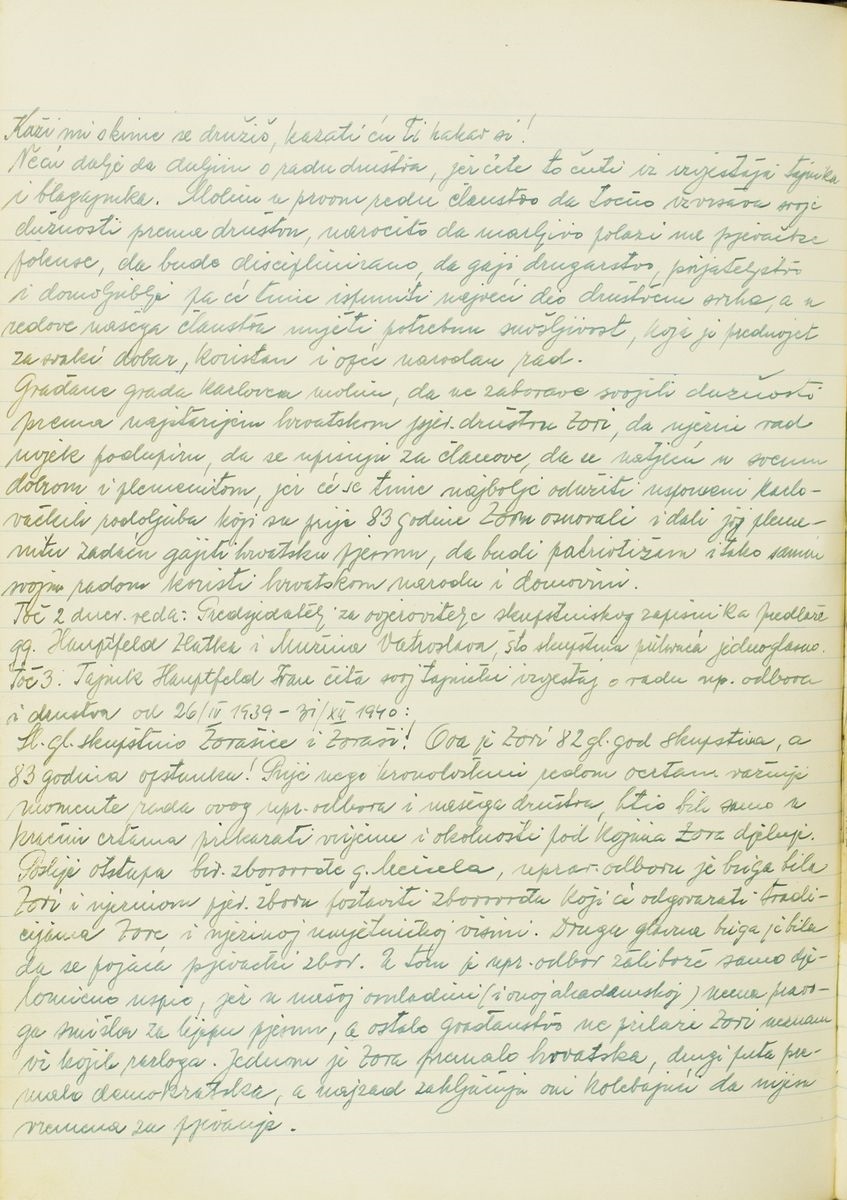 Kaži mi s kime se družiš, kazati ću ti kakav si!
Neću dalje da duljim o radu društva, jer ćete to čuti iz izvještaja tajnika
i blagajnika. Molim u prvom redu članstvo da točno izvršava svoje
dužnosti prema društvu, naročito da marljivo polazi na pjevačke
pokuse, da bude disciplinirano, da gaji drugarstvo, prijateljstvo
i domoljublje pa će time ispuniti najveći dio društvene svrhe, a u
redove našega članstva unijeti potrebnu snošljivost, koja je preduvjet
za svaki dobar, koristan i opće narodan rad.
Građane grada Karlovca molim, da ne zaborave svojih dužnosti
prema najstarijem hrvatskom pjev. društvu Zori, da njezin rad
uvjek podupiru, da se upisuju za članove, da se natječu u svemu
dobrom i plemenitom, jer će se time najbolje održati uspomeni karlo-
vačkih rodoljuba koji su prije 83 godine Zoru osnovali i dali joj pleme-
nitu zadaću gajiti hrvatsku pjesmu, da budi patriotizam i tako samim
svojim radom koristi hrvatskom narodu i domovini.
Toč 2 dnev. reda: Predsjedatelj za ovjerovitelje skupštinskog zapisnika predlaže
gg. Hauptfeld Zlatka i Mužina Vatroslava, što skupština prihvaća jednoglasno.
Toč 3: Tajnik Hauptfeld Fran čita svoj tajnički izvještaj o radu up. odbora
i društva od 26/IV 1939 - 31/XII 1940:
Sl. gl. skupštino Zorašice i Zoraši! Ova je Zori 82 gl. god skupština, a
83 godina opstanka! Prije nego kronološkim redom ocrtam važnije
momente rada ovog upr. odbora i našega društva, htio bih samo u
kratkim crtama prikazati vrijeme i okolnosti pod kojima Zora djeluje.
Poslije otstupa biv. zborovođe g. uprav. odboru je briga bila
Zori i njezinom pjev. zboru postaviti zborovođu koji će odgovarati tradi-
cijama Zore i njezinoj umjetničkoj visini. Druga glavna briga je bila
da se pojača pjevački zbor. U tom je upr. odbor žalibože samo dje-
lomično uspio, jer u našoj omladini (i onoj akademskoj) nema pravo-
ga smisla za lijepu pjesmu, a ostalo građanstvo ne prilazi Zori neznam
iz kojih razloga. Jednom je Zora premalo hrvatska, drugi puta pre-
malo demokratska, a najzad zaključuju oni kolebajući da nijem
vremena za pjevanje.